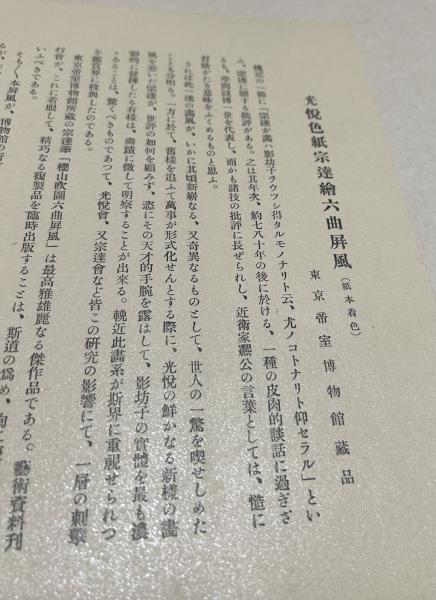 光悅色紙宗達繪六曲屛風(紙本着色)
東京帝室博物館藏品
槐記の一節に「宗達が畵ハ影坊子チウツシ得タルモノナリト云、尤ノコトナリト仰セラル」とい
ふ、宗達に關する批評がある。之は其年次、約七八十年の後に於ける、一種の皮肉的談話に過ぎざ
るも、學問該博一世を代表し、而かも諸技の批評に長ぜられし、近衛家凞公の言葉としては、慥に
打消がたき意味をふくめるものと思ふ。
されば此一流の畵風が、いかに其頃新嶄なる、又奇異なるものとして、世人の一驚を喫せしめた
ことも分明る。一方に於て、舊樣を追ふて萬事が形式化せんとする際に、光悅の鮮かなる新樣の書
風を慕いだ宗達が、世評の如何を顧みず、恣にその天才的手腕を露はして、影坊子の實體を最も濃
影的に發揮したる有樣は、畵蹟に徵して明察することが出來る。輓近此畵系が斯界に重視せられつ
つあることは、驚くべきものであつて、光悅會、又宗達會など皆この研究の影響にて、一層の刺擊
を鑑賞界に投與したのである。
東京帝室博物館所藏の宗達筆「櫻山吹圖六曲屛風」は最高雅雄麗なる傑作品である。藝術資料刊
行會が、これに着眼して、精巧なる複製品を臨時出版することは、斯道の爲め、洵に
いふべきである。
そもそも本屛風が、博物館の